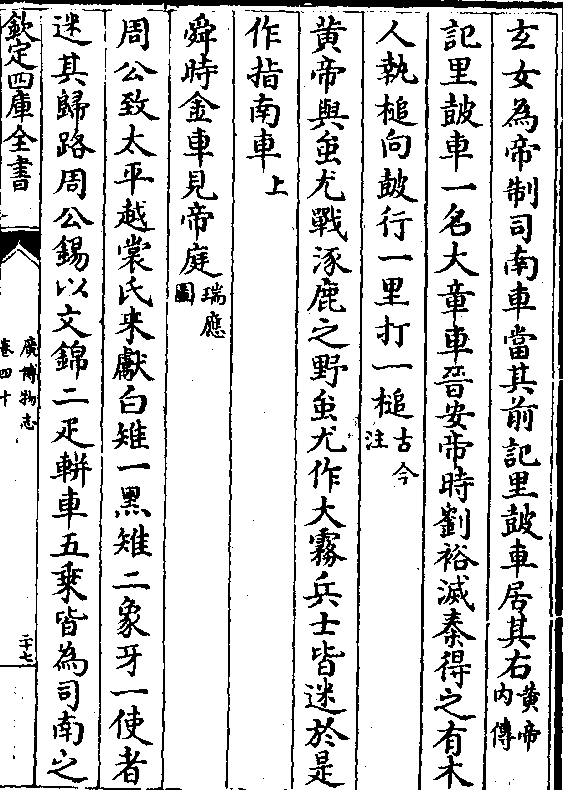 玄女為帝制司南車當其前記里鼓車居其右黄帝内傳
記里鼓車一名大章車晉安帝時劉裕滅秦得之有木
人執槌向鼓行一里打一槌古今注
黄帝與蚩尤戰涿鹿之野蚩尤作大霧兵士皆迷於是
作指南車上
舜時金車見帝庭瑞應圖
周公致太平越裳氏来獻白雉一黒雉二象牙一使者
迷其歸路周公錫以文錦二疋軿車五乗皆為司南之
欽定四庫全書
廣博物志
卷四十
二十七